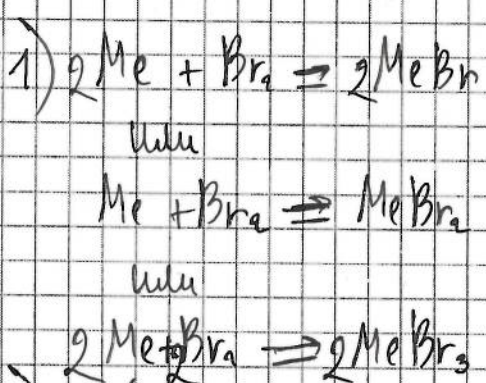 1) 2Me + Br₂ = 2MeBr
или
Me + Br₂ = MeBr₂
или
2Me + 2Br₂ => 2MeBr₃